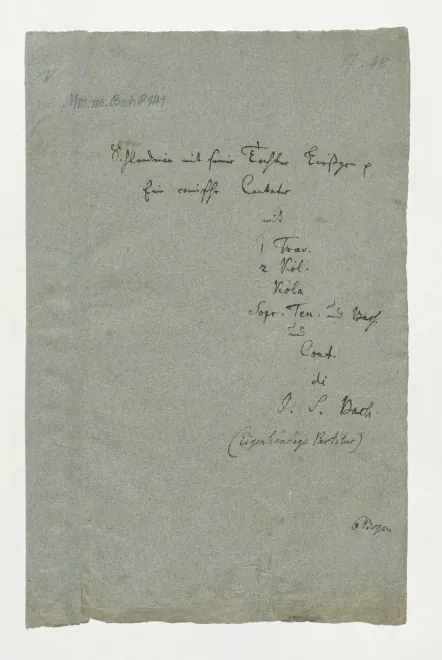 N. 48
Mus. ms. Bach P 141
Schlendrian mit seiner Tochter Ließgen
Eine comische Cantata
mit
1 Trav.
2 Viol.
Viola
Sopr. Ten. und Bass
und
Cont.
di
J. S. Bach.
(Eigenhändige Partitur)
6 Bogen